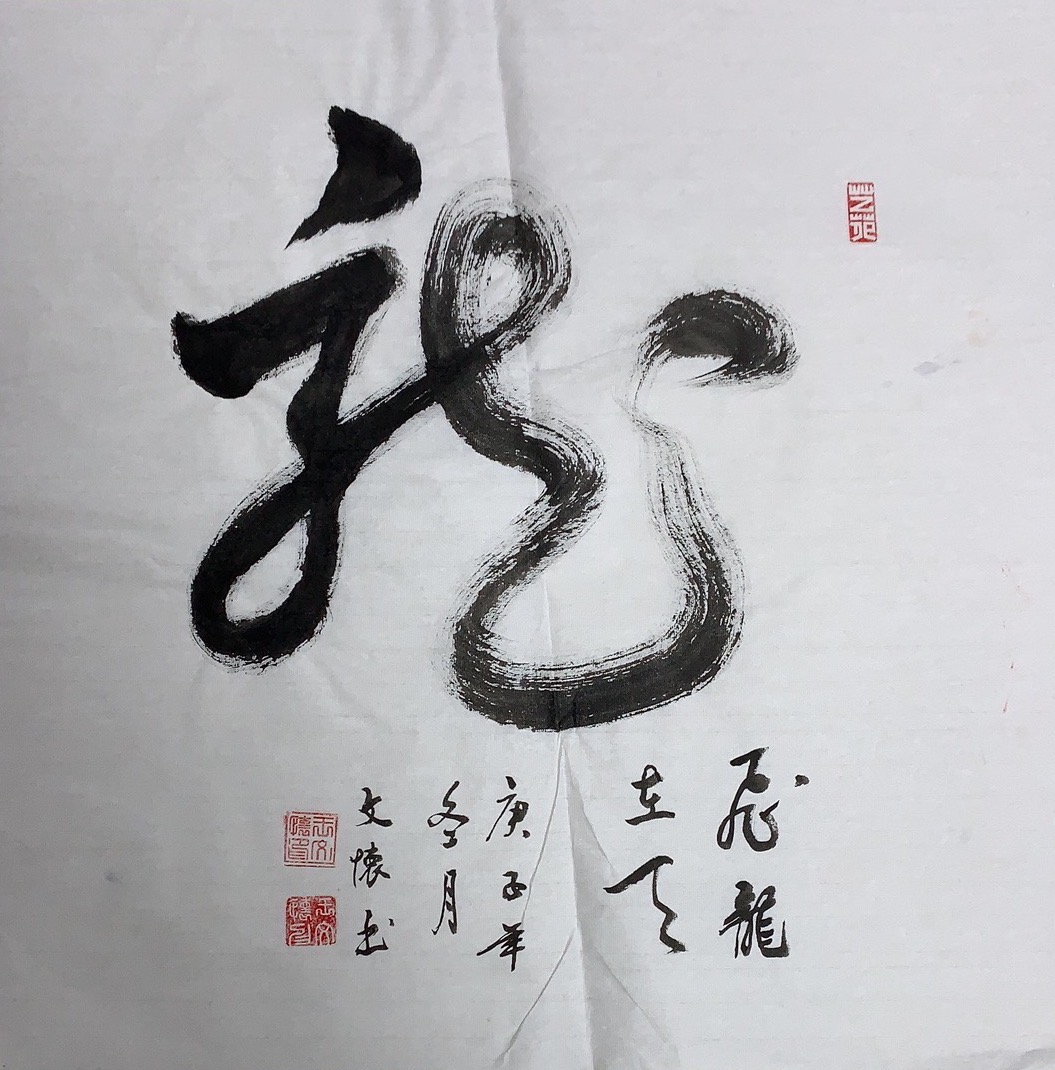 龍
飛龍
在天
庚子年
冬月
文懷書